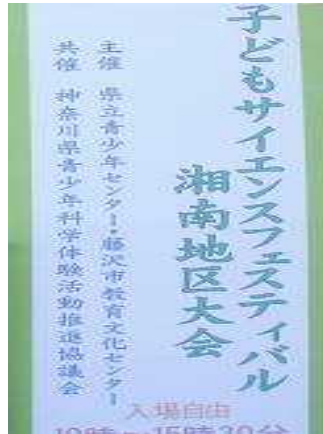 子どもサイエンスフェスティバル
湘南地区大会
主催 県立青少年センター・藤沢市教育文化センター
共催 神奈川県青少年科学体験活動推進協議会
入場自由
10時〜15時30分